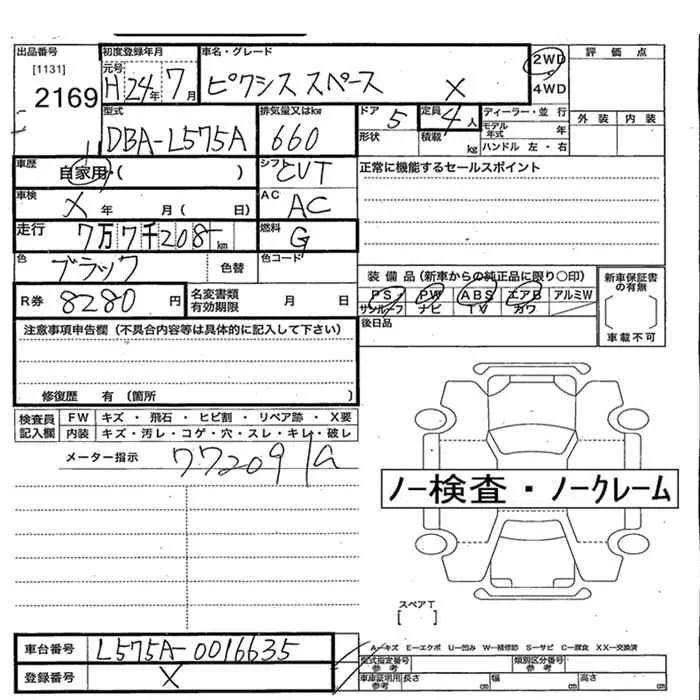 出品番号 初度登録年月 車名・グレード 2WD 評価点
[1131] 元号 H 24年 7月 ピクシス スペース X 4WD
2169
型式 排気量又はkw ドア 5 定員 4人 ディーラー・並行 外装 内装
DBA-L575A 660 形状 積載 kg モデル年式 年
ハンドル 左・右
車歴 自家用・( ) シフト CVT 正常に機能するセールスポイント
車検 X 年 月( 日) AC AC
走行 7万7千208km 燃料 G
色 ブラック 色替 色コード
装備品(新車からの純正品に限り〇印) 新車保証書の有無
R券 8280円 名変書類有効期限 月 日 PS PW ABS エアB アルミW
サンルーフ ナビ TV カワ
注意事項申告欄(不具合内容等は具体的に記入して下さい) 後日品 車載不可
修復歴 有(箇所 )
検査員記入欄 FW キズ・飛石・ヒビ割・リペア跡・X要
内装 キズ・汚レ・コゲ・穴・スレ・キレ・破レ
メーター指示 77209
ノー検査・ノークレーム
スペアT
[ ]
車台番号 L575A-0016635 A-キズ E-エクボ U-凹み W-補修跡 S-サビ C-腐食 XX-交換済
型式指定番号参考 類別区分番号参考
登録番号 X 車庫証明用参考 長さ cm 幅 cm 高さ cm